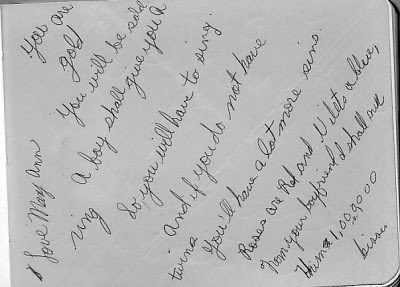 You are
gold
You will be sold
A boy shall give you a
ring
So you will have to sing.
and if you do not have
twins
You'll have a lot more sins.
Roses are Red and Vilets a blue,
your boyfriend I shall
Him
kisses
Love Mary Ann